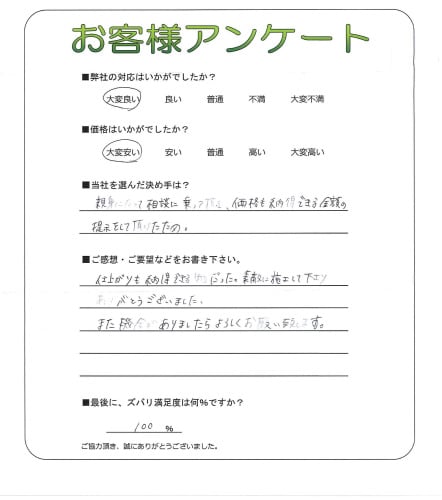 お客様アンケート
■弊社の対応はいかがでしたか？
大変良い 良い 普通 不満 大変不満
■価格はいかがでしたか？
大変安い 安い 普通 高い 大変高い
■当社を選んだ決め手は？
親身になって相談に乗って頂き、価格も納得できる金額の
提示をして頂けたため。
■ご感想・ご要望などをお書き下さい。
仕上がりも納得できる物だった。素敵に施工して下さり
ありがとうございました。
また機会がありましたらよろしくお願い致します。
■最後に、ズバリ満足度は何%ですか？
100 %
ご協力頂き、誠にありがとうございました。